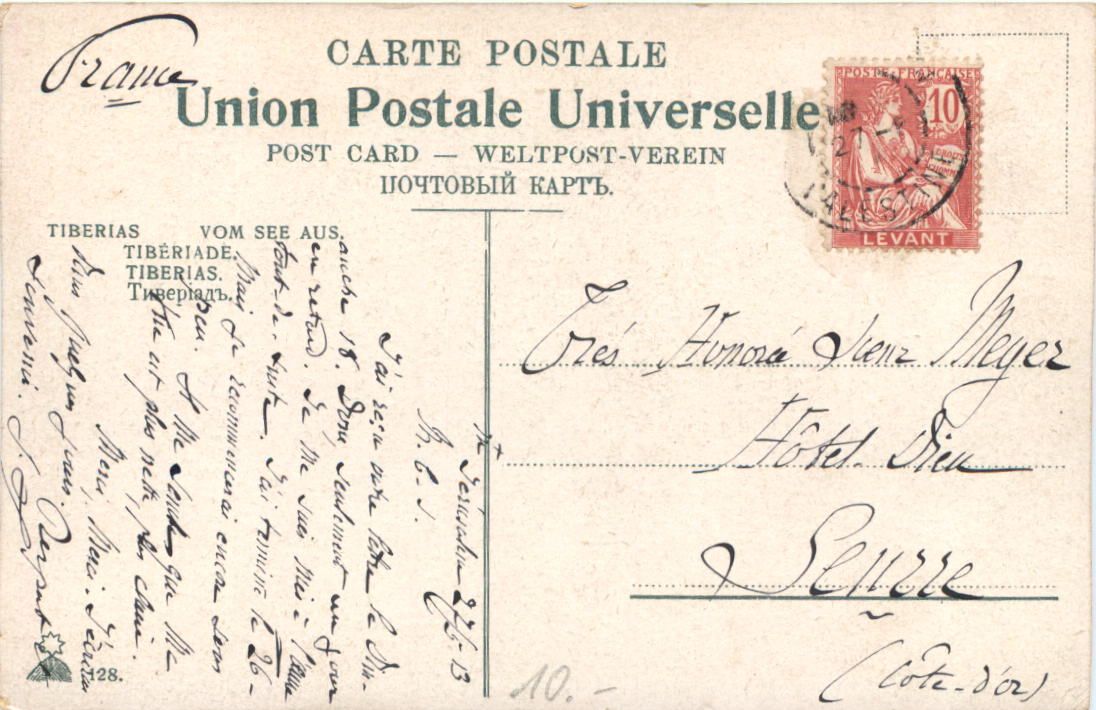 France
CARTE POSTALE
Union Postale Universelle
POST CARD — WELTPOST-VEREIN
ПОЧТОВЫЙ КАРТЪ.
POSTE FRANÇAISE
10
LEVANT
27
PALESTINE
TIBERIAS VOM SEE AUS.
TIBÉRIADE.
TIBERIAS.
Тиверіадъ.
Jérusalem 27/5-13
J'ai reçu votre lettre le Dim-
anche 18. Donc seulement un jour
en retard. Je me suis mis à l'œuvre
tout-de-suite. J'ai terminé le 26-
Mais je recommencerai encore sous
peu.
vue est plus nette, plus claire.
Merci, Merci. J'écrirai
dans quelques jours.
Souvenir.
Trés Honorée Sœur Meyer
Hôtel-Dieu
Seurre
(Côte-d'or)
128.
10.-